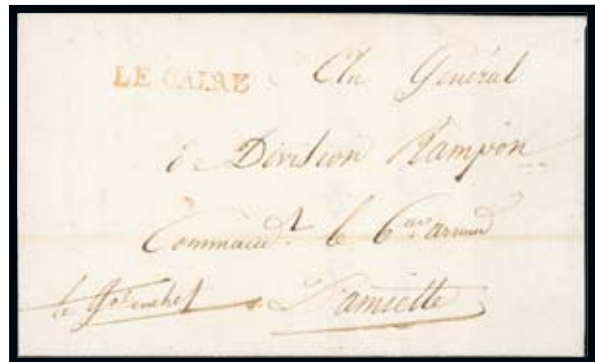 LE CAIRE Au Général
de Division Rampon
Command.t le 6.me arrond.t
le G.al en chef à Damiette